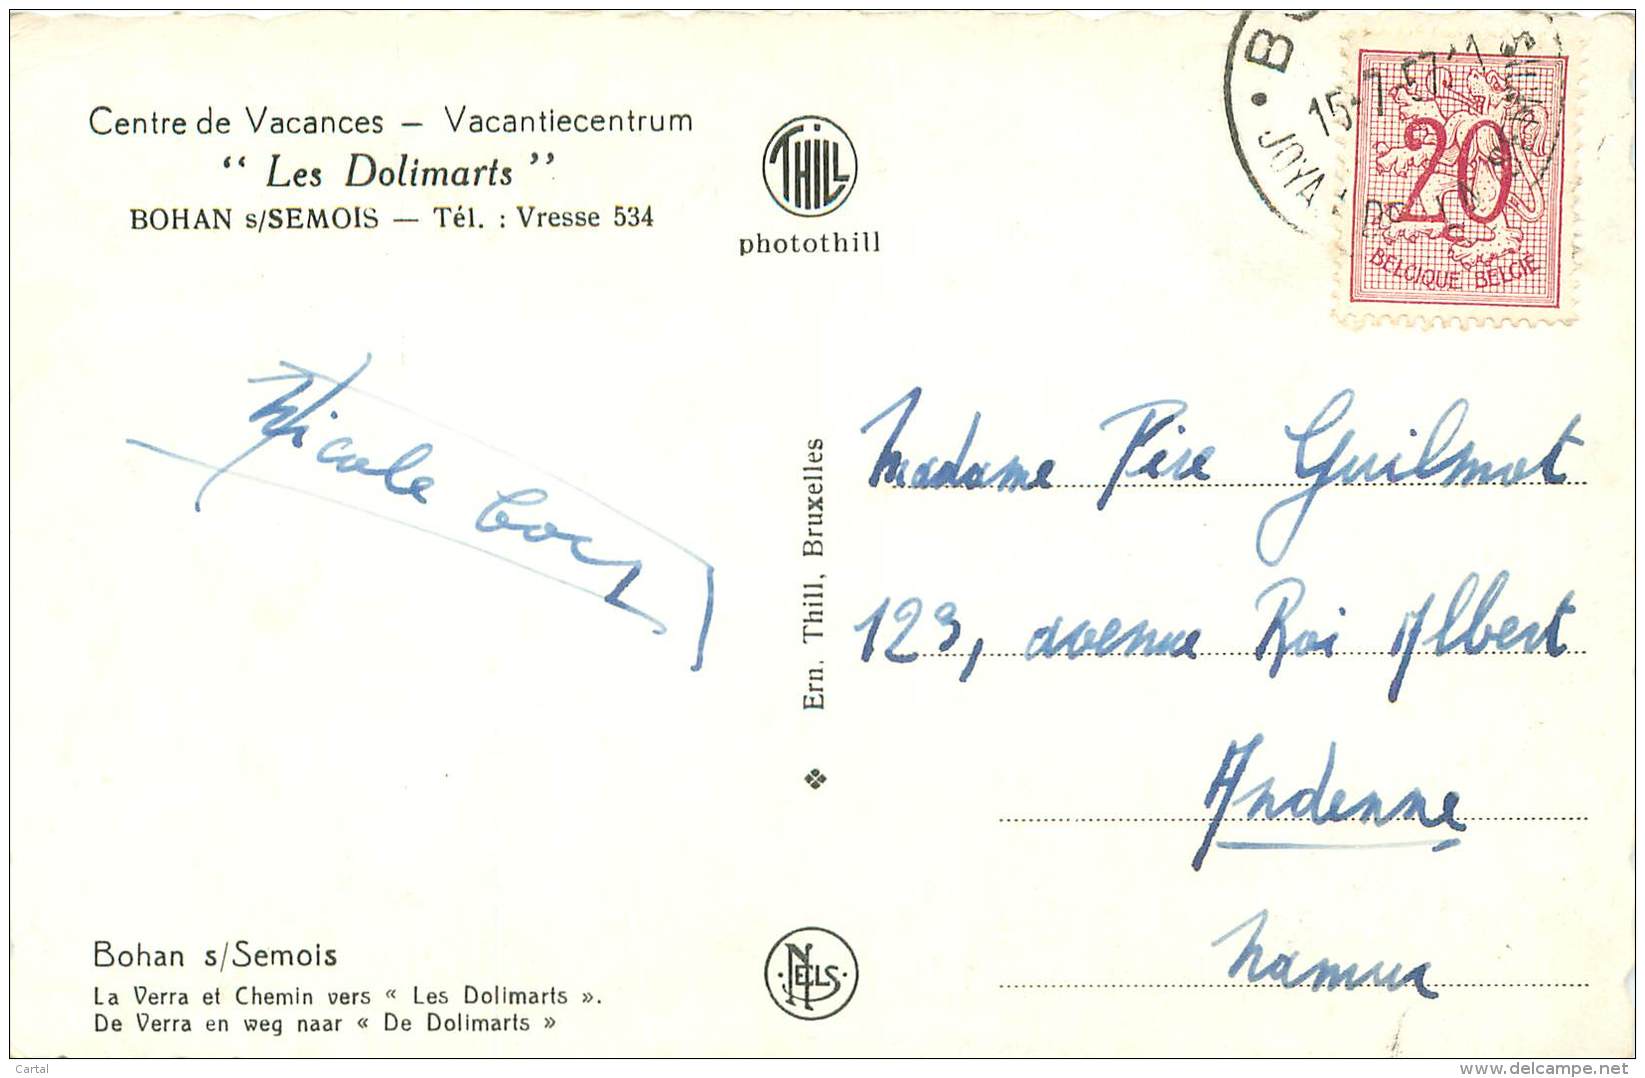 Centre de Vacances — Vacantiecentrum
“ Les Dolimarts ”
BOHAN s/SEMOIS — Tél. : Vresse 534
THILL
photothill
15-7-57-11
JOYA
20
BELGIQUE BELGIË
Nicole
Ern. Thill, Bruxelles
Madame Pire Guilmot
123, avenue Roi Albert
Andenne
Namur
Bohan s/Semois
La Verra et Chemin vers « Les Dolimarts ».
De Verra en weg naar « De Dolimarts »
NELS
Cartal
www.delcampe.net